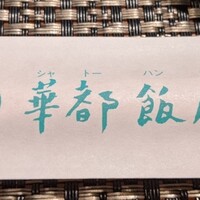 シャ トー ハン
華都飯